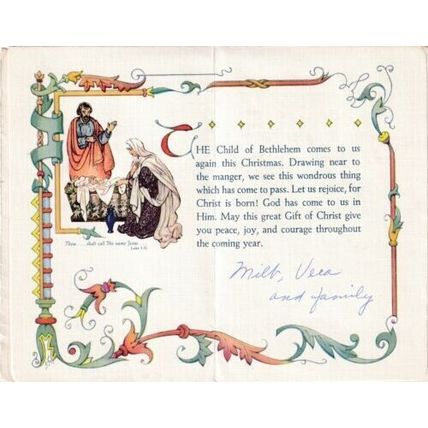 THE Child of Bethlehem comes to us
again this Christmas. Drawing near to
the manger, we see this wondrous thing
which has come to pass. Let us rejoice, for
Christ is born! God has come to us in
Him. May this great Gift of Christ give
you peace, joy, and courage throughout
the coming year.
Thou . . . shalt call His name Jesus
Milt, Vera
and family